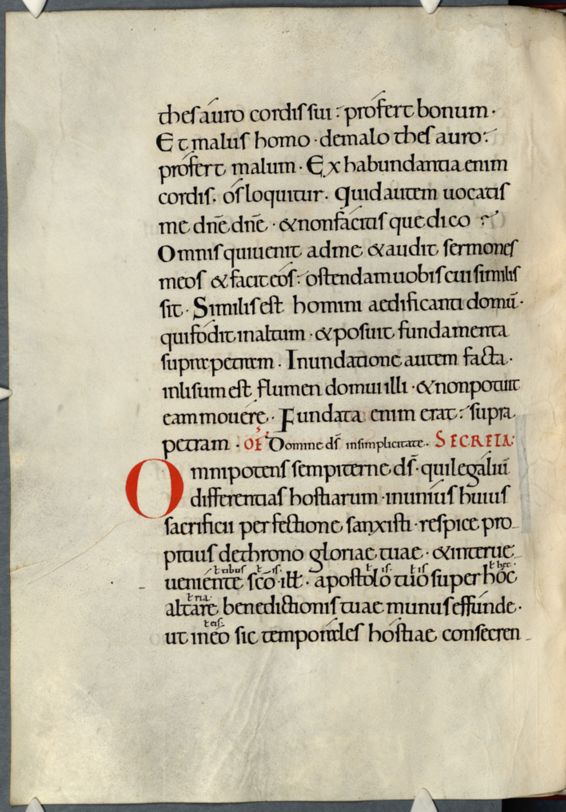 thesauro cordis sui : profert bonum ·
Et malus homo · demalo thesauro :
profert malum · Ex habundantia enim
cordis · os loquitur · Quid autem uocatis
me dn̄e dn̄e · & non facitis que dico :
Omnis qui uenit ad me & audit sermones
meos & facit eos : ostendam uobis cui similis
sit · Similis est homini aedificanti domū ·
qui fodit in altum · & posuit fundamenta
supra petram · Inundatione autem facta ·
inlisum est flumen domui illi · & non potuit
eam mouere · Fundata enim erat : supra
petram · OF̄ Domine ds̄ in simplicitate · SECRETA:
Omnipotens sempiterne ds̄ · qui legaliū
differentias hostiarum · in unius huius
sacrificii perfectione sanxisti · respice pro-
pitius de throno gloriae tuae · & interue-
ł tibus ł is ł is ł is ł hec
ueniente sc̄o · ill̄ · apostolo tuo super hoc
ł ria
altare benedictionis tuae munus effunde ·
ł eis
ut in eo sic temporales hostiae consecren-